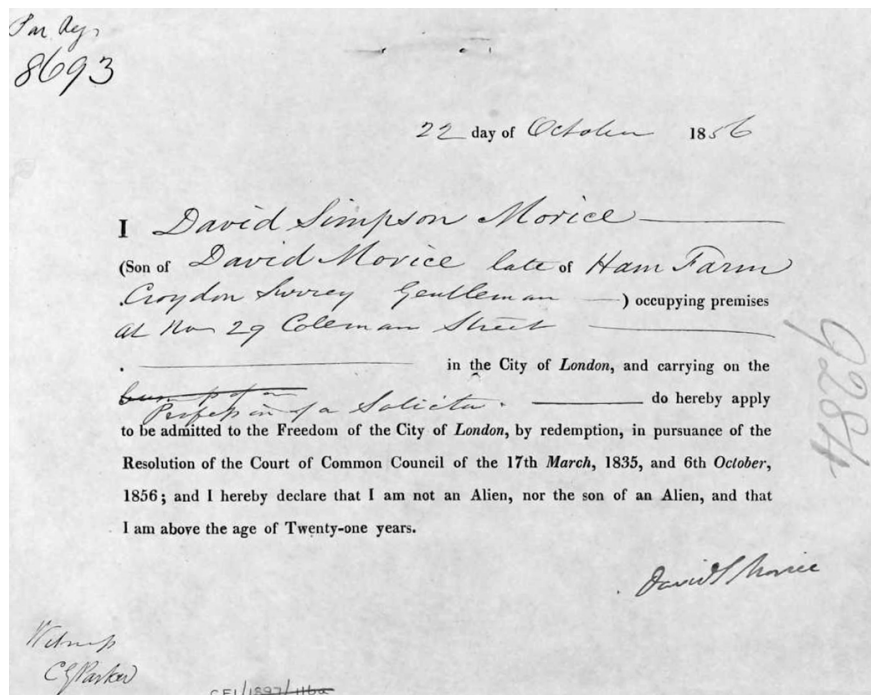 Par Reg.
8693
22 day of October 1856
I David Simpson Morice
(Son of David Morice late of Ham Farm
Croydon Surrey Gentleman ) occupying premises
at No 29 Coleman Street
in the City of London, and carrying on the
Profession of a Solicitor. do hereby apply
to be admitted to the Freedom of the City of London, by redemption, in pursuance of the
Resolution of the Court of Common Council of the 17th March, 1835, and 6th October,
1856; and I hereby declare that I am not an Alien, nor the son of an Alien, and that
I am above the age of Twenty-one years.
David S Morice
9284
Witness
CG Parker
CF1/1897/116a